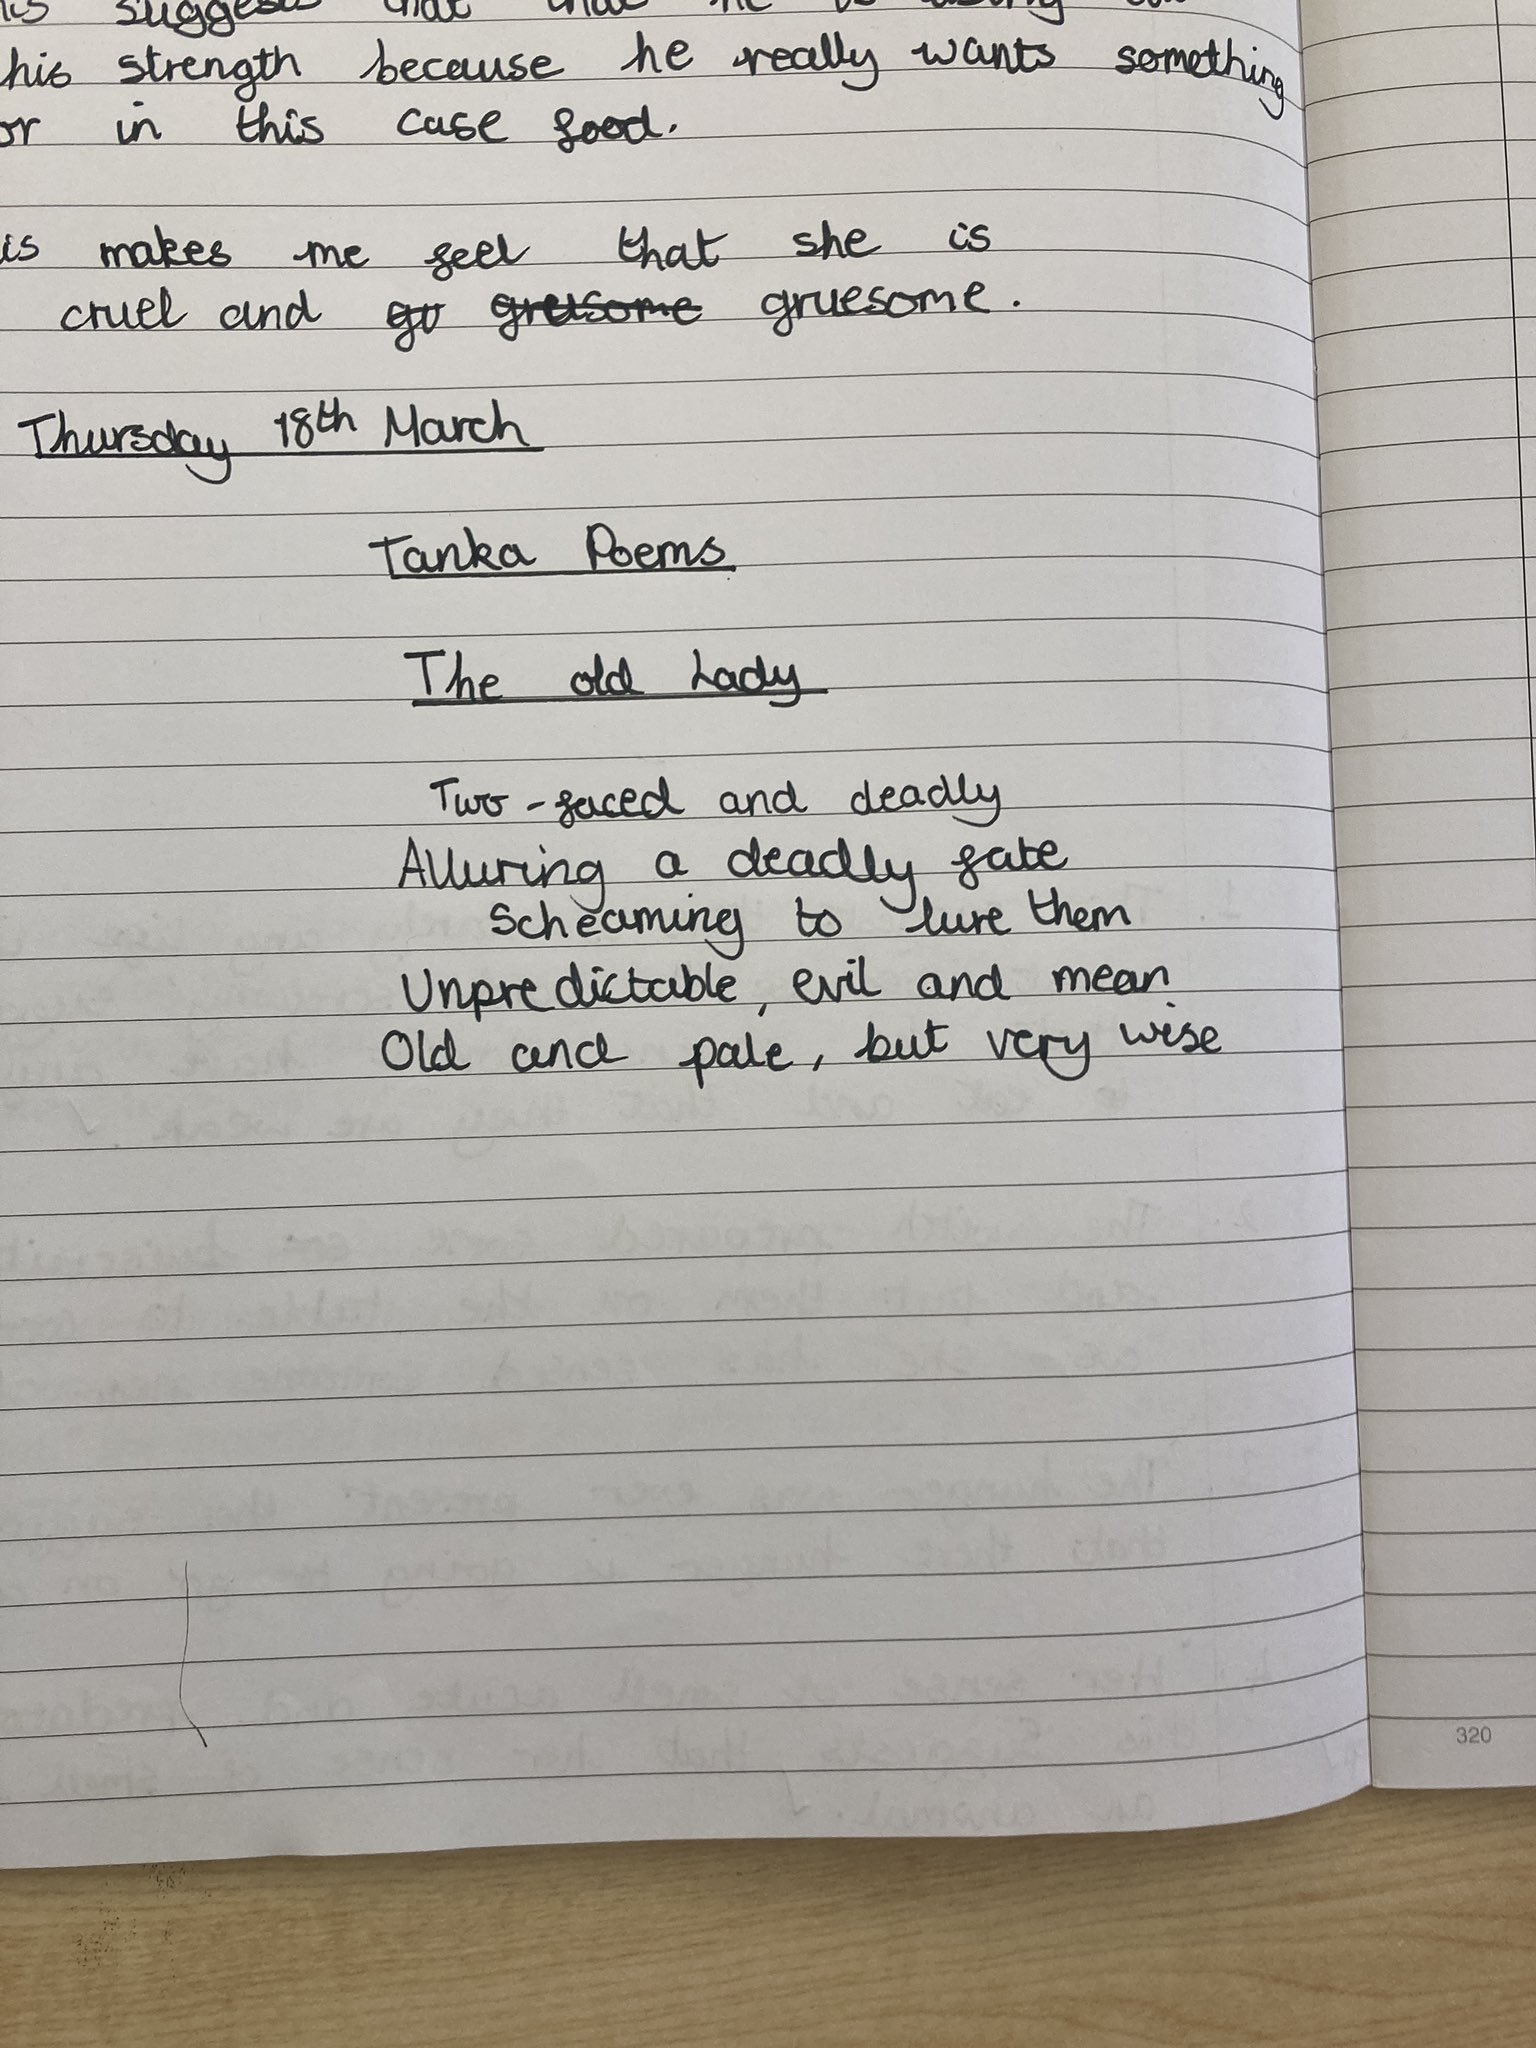 suggests that that he is using
his strength because he really wants something
or in this case food.
is makes me feel that she is
cruel and go gresome gruesome.
Thursday 18th March
Tanka Poems
The old Lady
Two-faced and deadly
Alluring a deadly fate
Scheaming to lure them
Unpredictable, evil and mean
Old and pale, but very wise
320